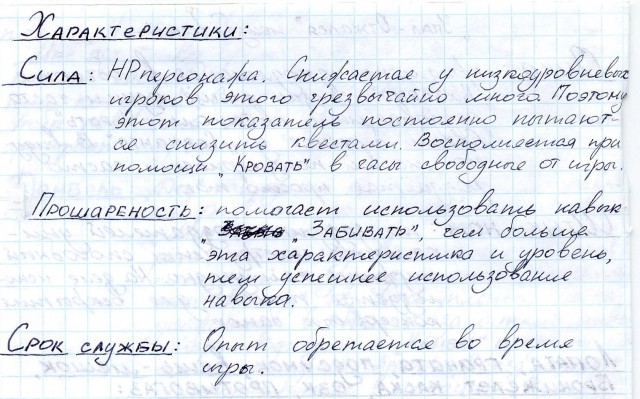 Характеристики:
Сила: HP персонажа. Снижается у низкоуровневых
игроков этого чрезвычайно много. Поэтому
этот показатель постоянно пытают-
ся снизить квестами. Восполняется при
помощи „Кровать" в часы свободные от игры.
Прошареность: помогает использовать навык
„Забивать", чем больше
эта характеристика и уровень,
тем успешнее использование
навыка.
Срок службы: Опыт обретается во время
игры.